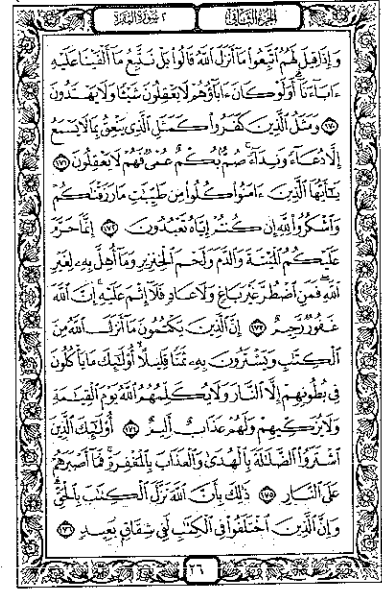 الجزء الثاني ٢ سورة البقرة
وَإِذَا قِيلَ لَهُمُ ٱتَّبِعُوا۟ مَآ أَنزَلَ ٱللَّهُ قَالُوا۟ بَلْ نَتَّبِعُ مَآ أَلْفَيْنَا عَلَيْهِ
ءَابَآءَنَآ أَوَلَوْ كَانَ ءَابَآؤُهُمْ لَا يَعْقِلُونَ شَيْـًٔا وَلَا يَهْتَدُونَ
﴿١٧٠﴾ وَمَثَلُ ٱلَّذِينَ كَفَرُوا۟ كَمَثَلِ ٱلَّذِى يَنْعِقُ بِمَا لَا يَسْمَعُ
إِلَّا دُعَآءً وَنِدَآءً صُمٌّۢ بُكْمٌ عُمْىٌ فَهُمْ لَا يَعْقِلُونَ ﴿١٧١﴾
يَـٰٓأَيُّهَا ٱلَّذِينَ ءَامَنُوا۟ كُلُوا۟ مِن طَيِّبَـٰتِ مَا رَزَقْنَـٰكُمْ
وَٱشْكُرُوا۟ لِلَّهِ إِن كُنتُمْ إِيَّاهُ تَعْبُدُونَ ﴿١٧٢﴾ إِنَّمَا حَرَّمَ
عَلَيْكُمُ ٱلْمَيْتَةَ وَٱلدَّمَ وَلَحْمَ ٱلْخِنزِيرِ وَمَآ أُهِلَّ بِهِۦ لِغَيْرِ
ٱللَّهِ فَمَنِ ٱضْطُرَّ غَيْرَ بَاغٍ وَلَا عَادٍ فَلَآ إِثْمَ عَلَيْهِ إِنَّ ٱللَّهَ
غَفُورٌ رَّحِيمٌ ﴿١٧٣﴾ إِنَّ ٱلَّذِينَ يَكْتُمُونَ مَآ أَنزَلَ ٱللَّهُ مِنَ
ٱلْكِتَـٰبِ وَيَشْتَرُونَ بِهِۦ ثَمَنًا قَلِيلًا أُو۟لَـٰٓئِكَ مَا يَأْكُلُونَ
فِى بُطُونِهِمْ إِلَّا ٱلنَّارَ وَلَا يُكَلِّمُهُمُ ٱللَّهُ يَوْمَ ٱلْقِيَـٰمَةِ
وَلَا يُزَكِّيهِمْ وَلَهُمْ عَذَابٌ أَلِيمٌ ﴿١٧٤﴾ أُو۟لَـٰٓئِكَ ٱلَّذِينَ
ٱشْتَرَوُا۟ ٱلضَّلَـٰلَةَ بِٱلْهُدَىٰ وَٱلْعَذَابَ بِٱلْمَغْفِرَةِ فَمَآ أَصْبَرَهُمْ
عَلَى ٱلنَّارِ ﴿١٧٥﴾ ذَٰلِكَ بِأَنَّ ٱللَّهَ نَزَّلَ ٱلْكِتَـٰبَ بِٱلْحَقِّ
وَإِنَّ ٱلَّذِينَ ٱخْتَلَفُوا۟ فِى ٱلْكِتَـٰبِ لَفِى شِقَاقٍۭ بَعِيدٍ ﴿١٧٦﴾
٢٦